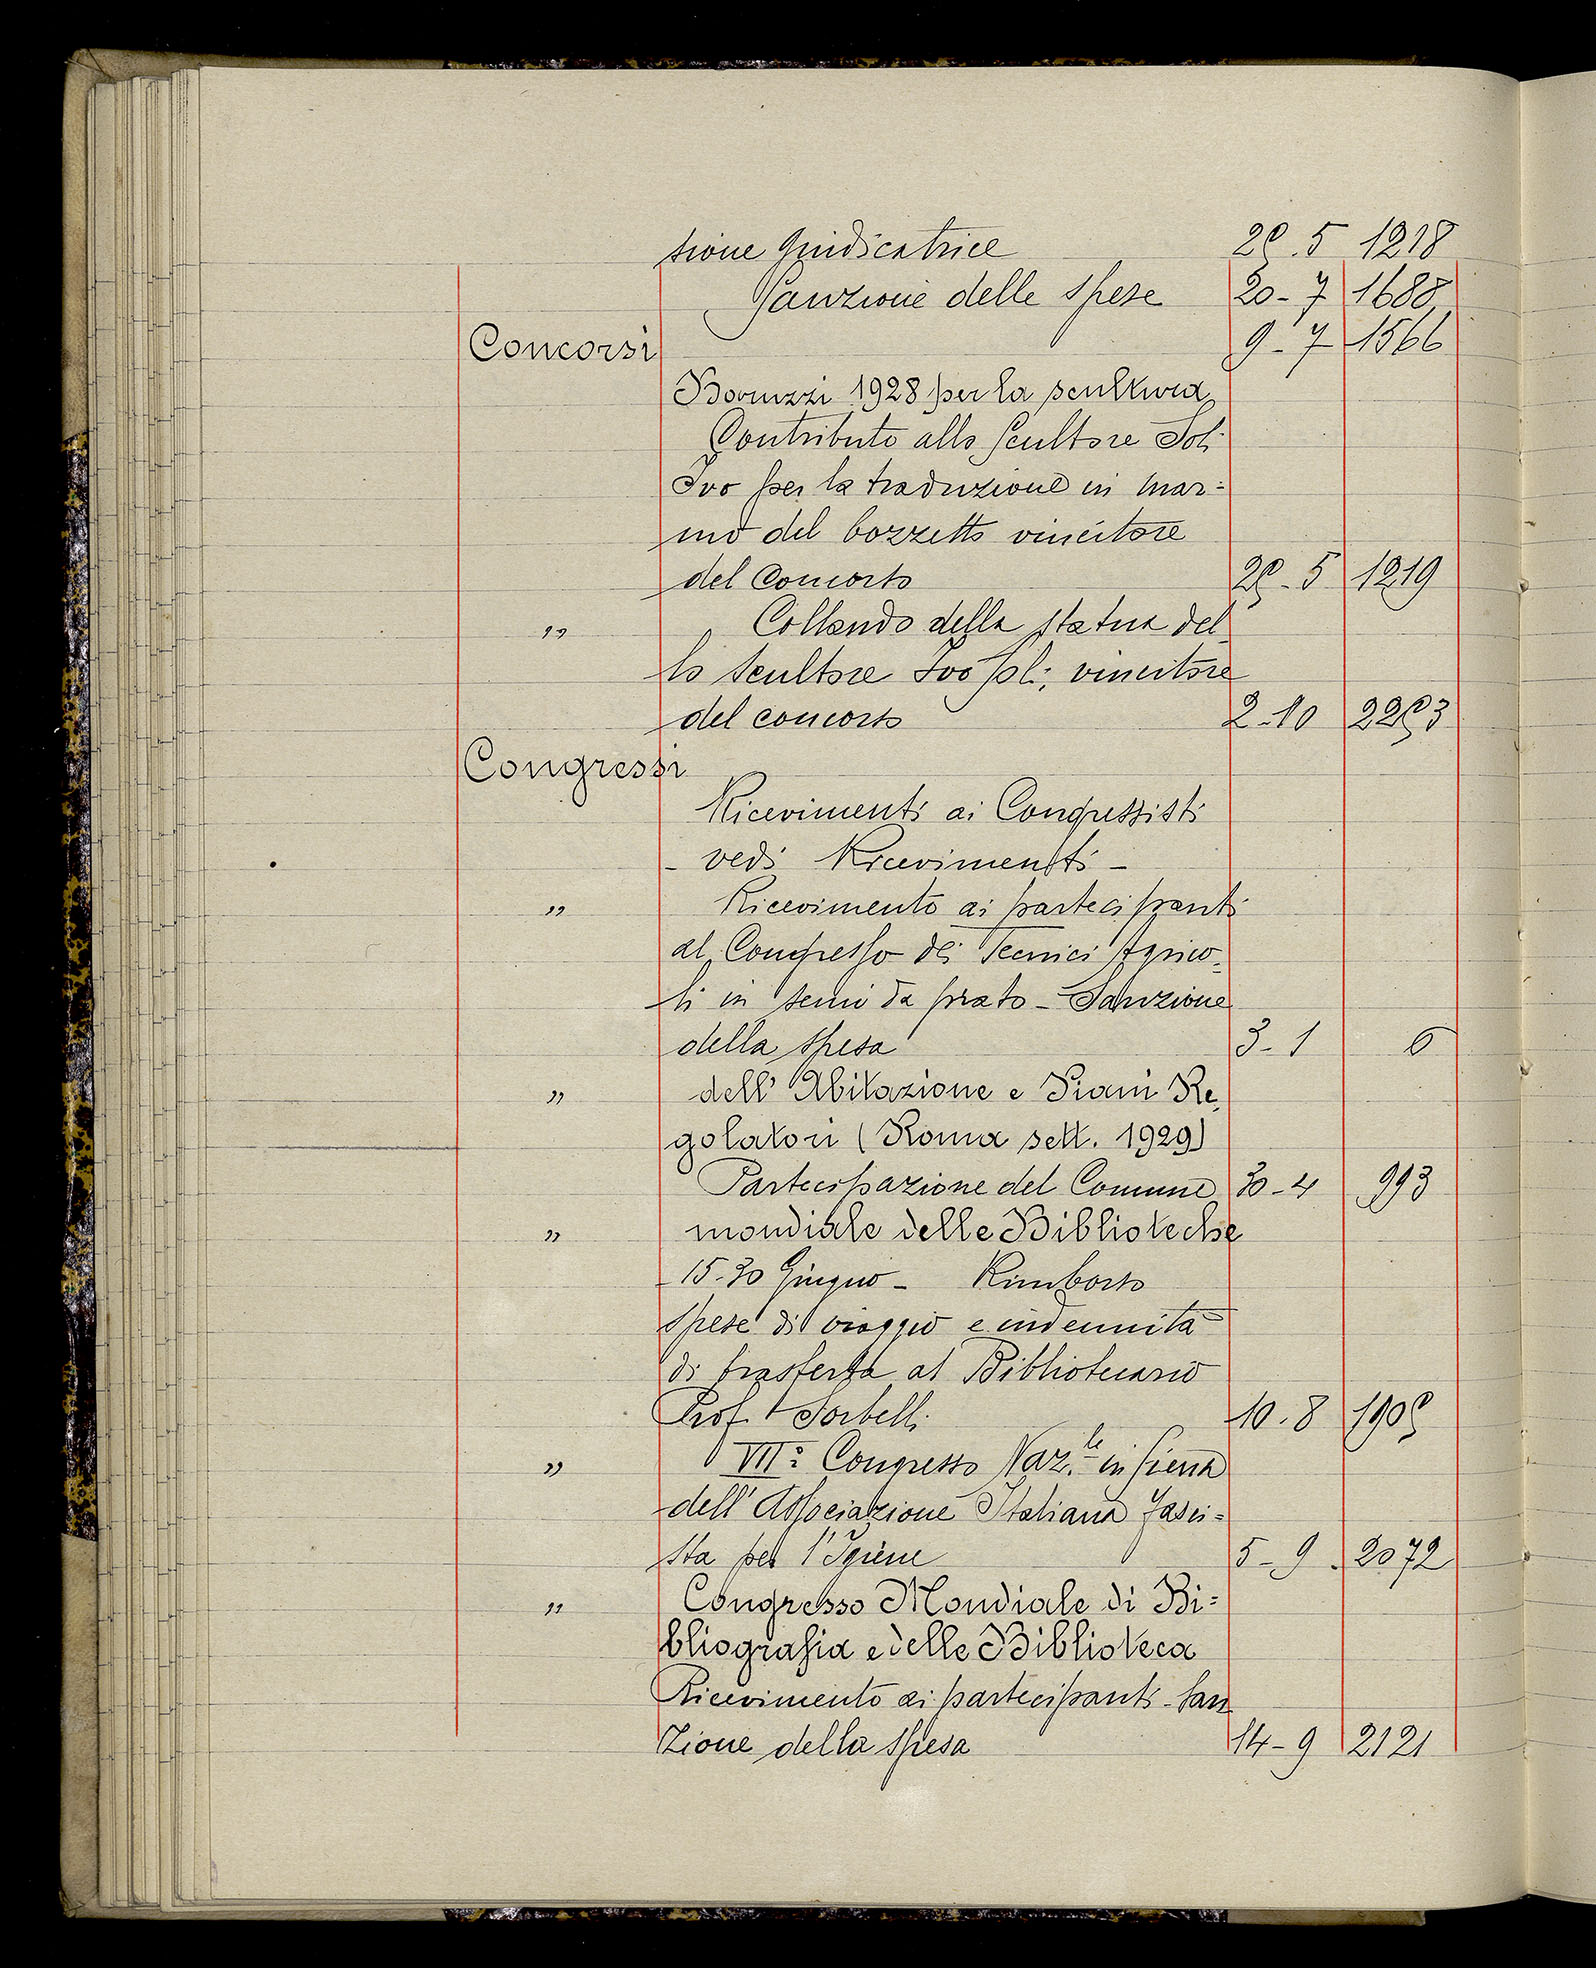 sione giudicatrice 28.5 1218
Sanzione delle spese 20-7 1688
Concorsi 9-7 1566
Baruzzi 1928 per la scultura
Contributo allo Scultore Soli
Ivo per la traduzione in mar=
mo del bozzetto vincitore
del Concorso 28-5 1219
" Collaudo della statua del
lo scultore Ivo Soli, vincitore
del concorso 2-10 2283
Congressi
Ricevimenti ai Congressisti
- vedi Ricevimenti -
" Ricevimento ai partecipanti
al Congresso dei Tecnici Agrico-
li in semi da prato - Sanzione
della spesa 3-1 6
" dell'Abitazione e Piani Re-
golatori (Roma sett. 1929)
Partecipazione del Comune 30-4 993
" mondiale delle Biblioteche
15-30 Giugno - Rimborso
spese di viaggio e indennità
di trasferta al Bibliotecario
Prof. Sorbelli 10.8 1908
" VII° Congresso Naz.le in Siena
dell'Associazione Italiana Fasci=
sta per l'Igiene 5-9 2072
" Congresso Mondiale di Bi=
bliografia e delle Biblioteca
Ricevimento ai partecipanti - San
zione della spesa 14-9 2121